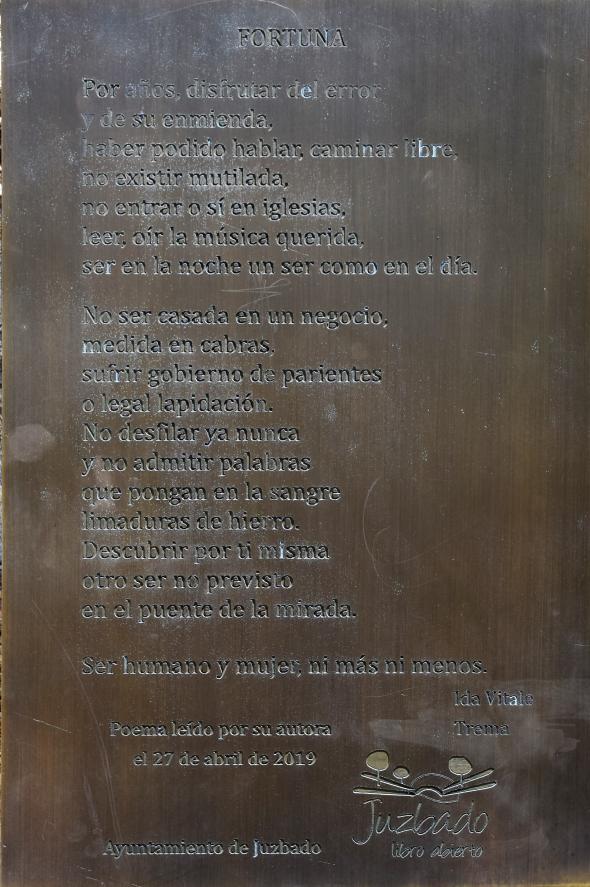 FORTUNA
Por años, disfrutar del error
y de su enmienda,
haber podido hablar, caminar libre,
no existir mutilada,
no entrar o sí en iglesias,
leer, oír la música querida,
ser en la noche un ser como en el día.
No ser casada en un negocio,
medida en cabras,
sufrir gobierno de parientes
o legal lapidación.
No desfilar ya nunca
y no admitir palabras
que pongan en la sangre
limaduras de hierro.
Descubrir por ti misma
otro ser no previsto
en el puente de la mirada.
Ser humano y mujer, ni más ni menos.
Ida Vitale
Trema
Poema leído por su autora
el 27 de abril de 2019
Juzbado
libro abierto
Ayuntamiento de Juzbado